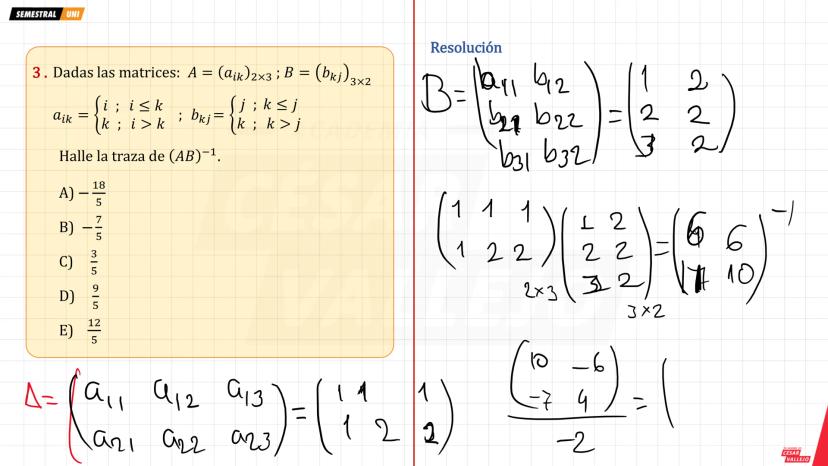 SEMESTRAL UNI
3. Dadas las matrices: A = (aᵢₖ)₂ₓ₃ ; B = (bₖⱼ)₃ₓ₂
aᵢₖ = { i ; i ≤ k
k ; i > k ; bₖⱼ = { j ; k ≤ j
k ; k > j
Halle la traza de (AB)⁻¹.
A) − 18/5
B) − 7/5
C) 3/5
D) 9/5
E) 12/5
Resolución
B = (a₁₁ b₁₂
b₂₁ b₂₂
b₃₁ b₃₂) = (1 2
2 2
3 2)
(1 1 1
1 2 2)₂ₓ₃ (1 2
2 2
3 2)₃ₓ₂ = (6 6
10)⁻¹
(10 −6
−7 4) / −2 = (
Δ = (a₁₁ a₁₂ a₁₃
a₂₁ a₂₂ a₂₃) = (1 1 1
1 2 2)
CESAR
VALLEJO